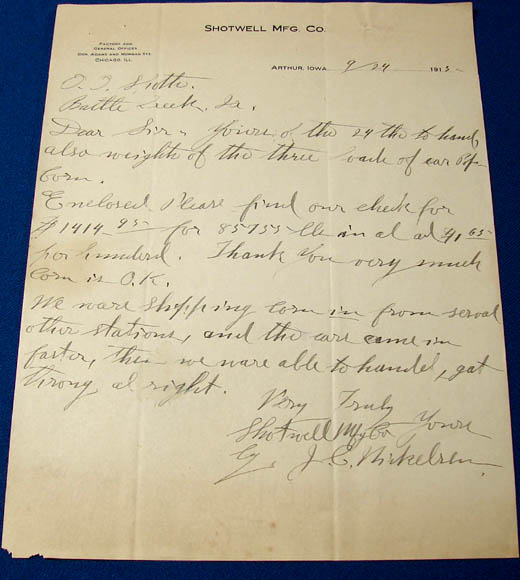 SHOTWELL MFG. CO.
FACTORY AND
GENERAL OFFICES
COR. ADAMS AND MORGAN STS.
CHICAGO, ILL.
ARTHUR, IOWA 9/24 1915
O. J.
Battle Creek, Ia.
Dear Sir:- Youre of the 24 the to hand,
also weights of the three loads of ear Pop-
Corn.
Enclosed Please find our check for
$1414 95 for 85755 lbs in al at $1 65
per hundred. Thank You very much
Corn is O.K.
We ware shipping corn in from serval
other stations, and the cars came in
faster, then we ware able to handel, gat
throug al right.
Very Truly
Youre
Shotwell Mfg Co
By J. E. Nickelsen.